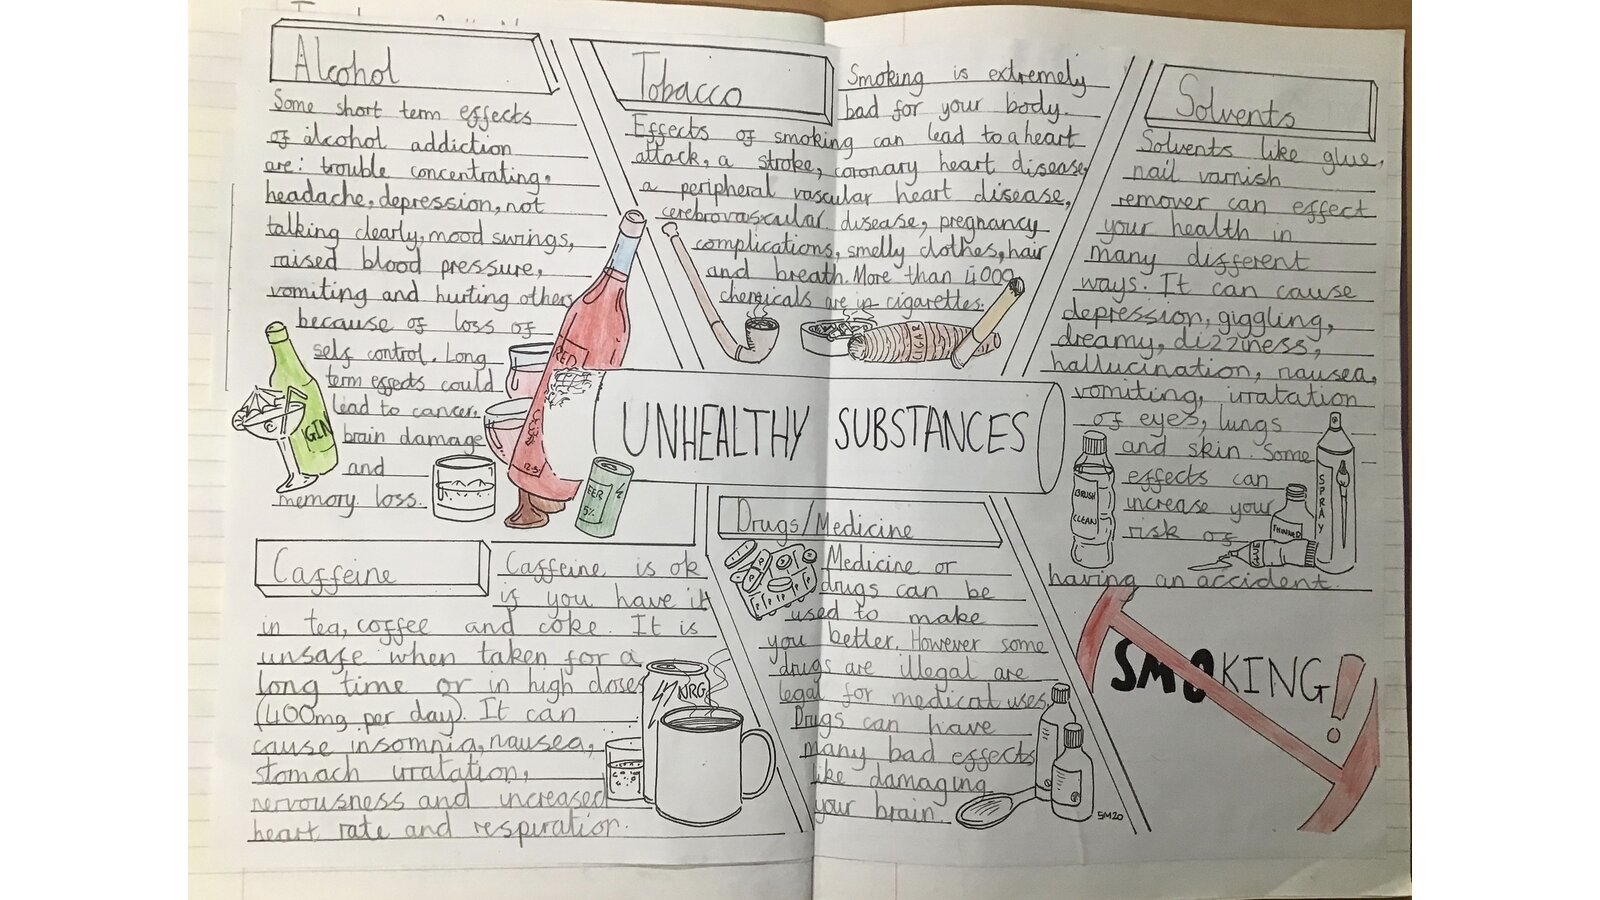 Alcohol
Some short term effects
of alcohol addiction
are: trouble concentrating,
headache, depression, not
talking clearly, mood swings,
raised blood pressure,
vomiting and hurting others
because of loss of
self control. Long
term effects could
lead to cancer,
brain damage
and
memory loss.
GIN
RED
12.5%
BEER
5%
Tobacco
Smoking is extremely
bad for your body.
Effects of smoking can lead to a heart
attack, a stroke, coronary heart disease,
a peripheral vascular heart disease,
cerebrovascular disease, pregnancy
complications, smelly clothes, hair
and breath. More than 4000
chemicals are in cigarettes.
CIGAR
UNHEALTHY SUBSTANCES
Solvents
Solvents like glue,
nail varnish
remover can effect
your health in
many different
ways. It can cause
depression, giggling,
dreamy, dizziness,
hallucination, nausea,
vomiting, irratation
of eyes, lungs
and skin. Some
effects can
increase your
risk of
having an accident.
BRUSH
CLEAN
GLUE
THINNER
SPRAY
Caffeine
Caffeine is ok
if you have it
in tea, coffee and coke. It is
unsafe when taken for a
long time or in high doses
(400mg per day). It can
cause insomnia, nausea,
stomach irratation,
nervousness and increased
heart rate and respiration.
NRG
Drugs/Medicine
Medicine or
drugs can be
used to make
you better. However some
drugs are illegal are
legal for medical uses.
Drugs can have
many bad effects
like damaging
your brain.
SM20
SMOKING!